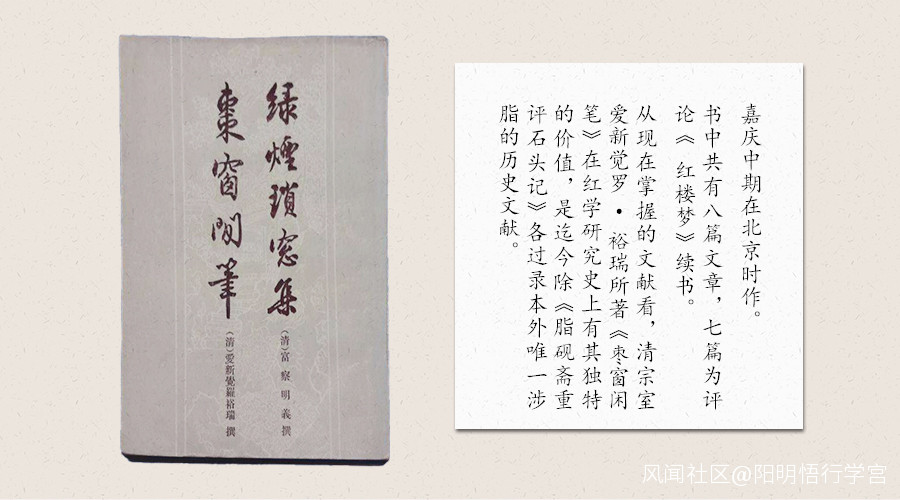 绿煙瑣窓集
(清)富察明義 撰
棗窗閒筆
(清)愛新覺羅裕瑞 撰
嘉庆中期在北京时作。
书中共有八篇文章，七篇为评
论《红楼梦》续书。
从现在掌握的文献看，清宗室
爱新觉罗•裕瑞所著《枣窗闲
笔》在红学研究史上有其独特
的价值，是迄今除《脂砚斋重
评石头记》各过录本外唯一涉
脂的历史文献。
风闻社区@阳明悟行学宫